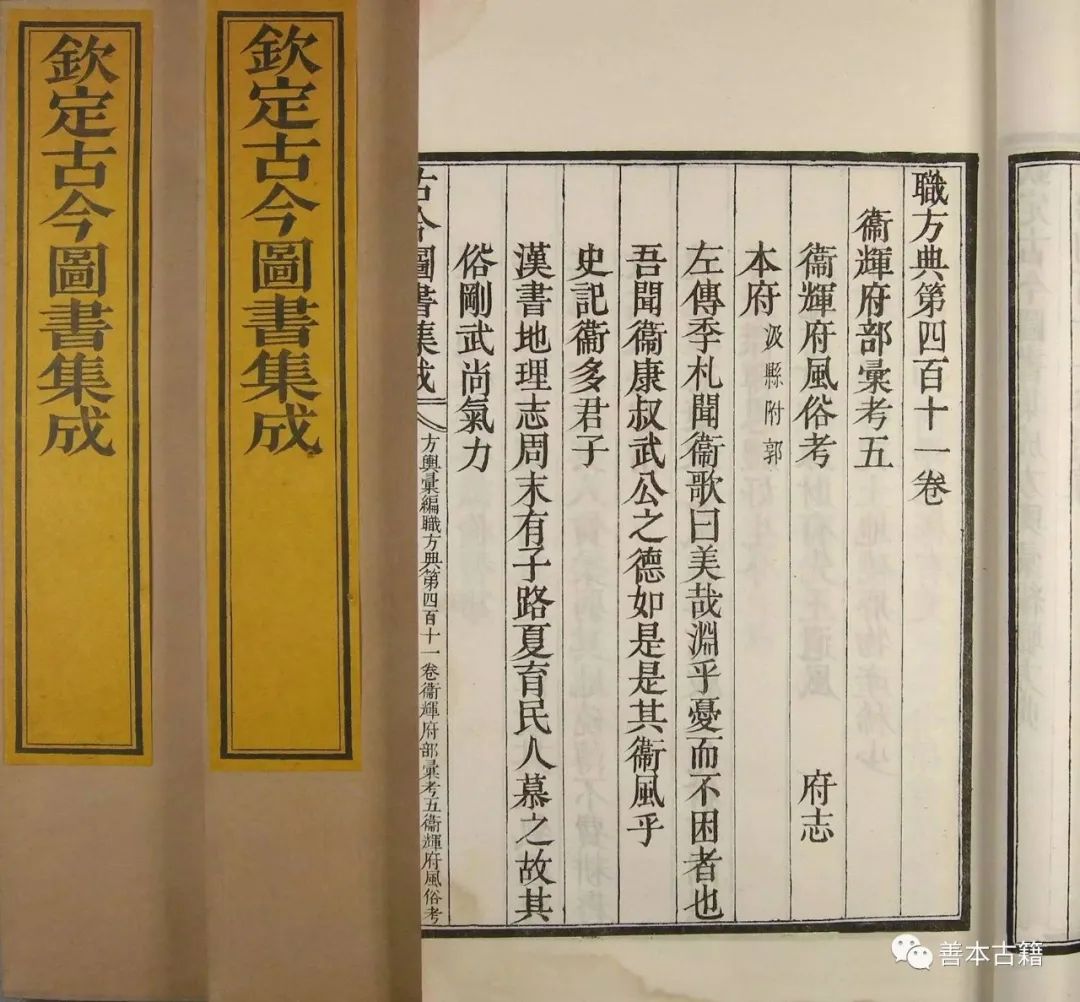 欽定古今圖書集成
欽定古今圖書集成
職方典第四百十一卷
衞輝府部彙考五
衞輝府風俗考 府志
本府 汲縣附郭
左傳季札聞衞歌曰美哉淵乎憂而不困者也
吾聞衞康叔武公之德如是是其衞風乎
史記衞多君子
漢書地理志周末有子路夏育民人慕之故其
俗剛武尚氣力
古今圖書集成
方輿彙編職方典第四百十一卷衞輝府部彙考五衞輝府風俗考
善本古籍